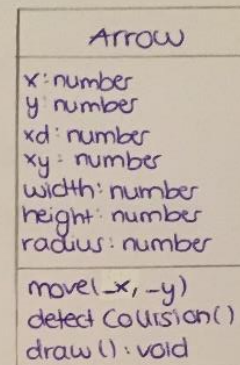 Arrow
x: number
y: number
xd: number
xy: number
width: number
height: number
radius: number
move(_x, _y)
detect Collision()
draw(): void